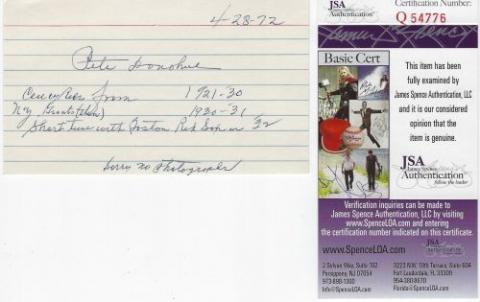 4-28-72
Pete Donohue
from 1921-30
N.Y. 1930-31
Short time with Boston Red Sox in 32
Sorry no photographs
JSA
Authentication™
Certification Number:
Q 54776
Basic Cert
This item has been
fully examined by
James Spence Authentication, LLC
and it is our considered
opinion that the
item is genuine.
JSA
Authentication
follow the leader
Verification inquiries can be made to
James Spence Authentication, LLC by visiting
www.SpenceLOA.com and entering
the certification number indicated on this certificate.
www.SpenceLOA.com
JSA
Authentication
2 Sylvan Way, Suite 102
Parsippany, NJ 07054
973-898-1300
Info@SpenceLOA.com
3223 N.W. 10th Terrace, Suite 604
Fort Lauderdale, FL 33309
954-380-8670
Florida@SpenceLOA.com